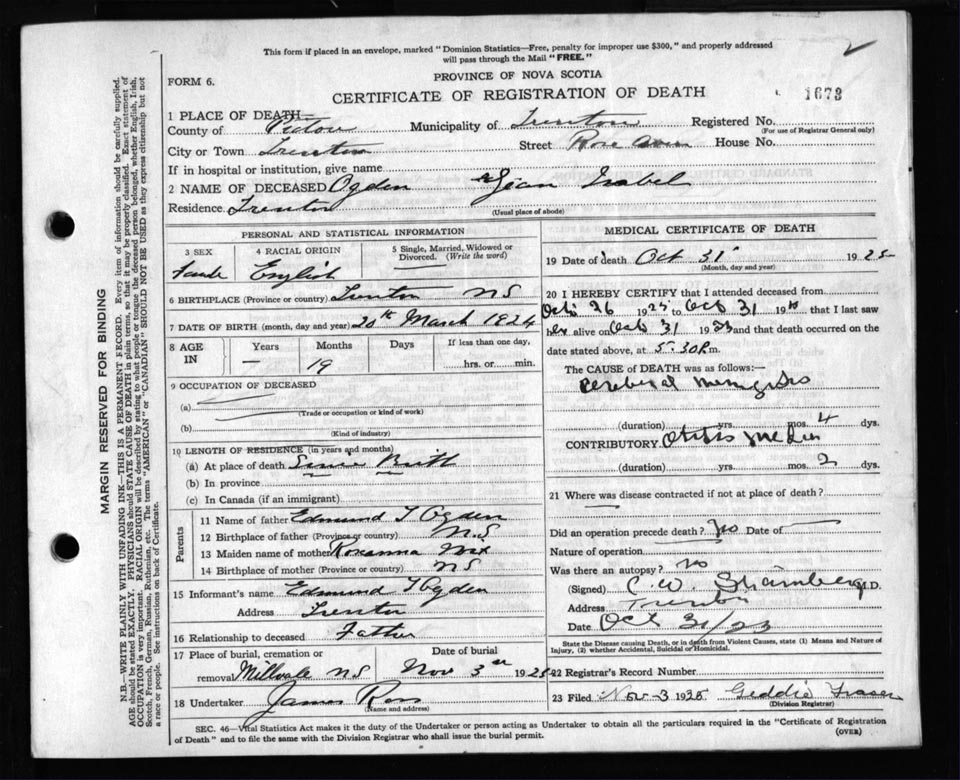 This form if placed in an envelope, marked "Dominion Statistics—Free, penalty for improper use $300," and properly addressed
will pass through the Mail "FREE."
FORM 6.
PROVINCE OF NOVA SCOTIA
CERTIFICATE OF REGISTRATION OF DEATH
1673
1 PLACE OF DEATH
County of Pictou Municipality of Trenton Registered No.
(For use of Registrar General only)
City or Town Trenton Street House No.
If in hospital or institution, give name
2 NAME OF DECEASED Ogden Jean Isabel
Residence Trenton
(Usual place of abode)
PERSONAL AND STATISTICAL INFORMATION
3 SEX 4 RACIAL ORIGIN 5 Single, Married, Widowed or
Divorced. (Write the word)
English
6 BIRTHPLACE (Province or country) Trenton NS
7 DATE OF BIRTH (month, day and year) 20th March 1924
8 AGE IN Years Months Days If less than one day,
— 19 hrs. or min.
9 OCCUPATION OF DECEASED
(a)
(Trade or occupation or kind of work)
(b)
(Kind of industry)
10 LENGTH OF RESIDENCE (in years and months)
(a) At place of death Since Birth
(b) In province
(c) In Canada (if an immigrant)
Parents
11 Name of father Edmund T Ogden
12 Birthplace of father (Province or country) N.S
13 Maiden name of mother Roxanna
14 Birthplace of mother (Province or country) NS
15 Informant's name Edmund T Ogden
Address Trenton
16 Relationship to deceased Father
17 Place of burial, cremation or Date of burial
removal Millvale NS Nov 3rd 1925
18 Undertaker James Ross
(Name and address)
MEDICAL CERTIFICATE OF DEATH
19 Date of death Oct 31 1925
(Month, day and year)
20 I HEREBY CERTIFY that I attended deceased from
Oct 26 1925 to Oct 31 19 that I last saw
her alive on Oct 31 19 and that death occurred on the
date stated above, at 5-30 P.m.
The CAUSE OF DEATH was as follows:—
Cerebral Meningitis
(duration) yrs. mos. 4 dys.
CONTRIBUTORY Otitis Media
(duration) yrs. mos. 2 dys.
21 Where was disease contracted if not at place of death?
Did an operation precede death? No Date of
Nature of operation
Was there an autopsy? No
(Signed) C. W. M.D.
Address Trenton
Date Oct 31/
State the Disease causing Death, or in death from Violent Causes, state (1) Means and Nature of
Injury, (2) whether Accidental, Suicidal or Homicidal.
22 Registrar's Record Number
23 Filed Nov-3 1925 Geddie Fraser
(Division Registrar)
SEC. 46—Vital Statistics Act makes it the duty of the Undertaker or person acting as Undertaker to obtain all the particulars required in the "Certificate of Registration
of Death" and to file the same with the Division Registrar who shall issue the burial permit.
(OVER)
MARGIN RESERVED FOR BINDING
N.B.—WRITE PLAINLY WITH UNFADING INK—THIS IS A PERMANENT RECORD. Every item of information should be carefully supplied.
AGE should be stated EXACTLY. PHYSICIANS should STATE CAUSE OF DEATH in plain terms, so that it may be properly classified. Exact statement of
OCCUPATION is very important. RACIAL ORIGIN will be described by stating to what people or tongue the deceased person belonged, whether English, Irish,
Scotch, French, German, Russian, Ruthenian, etc. The terms "AMERICAN" or "CANADIAN" SHOULD NOT BE USED as they express citizenship but not
a race or people. See instructions on back of Certificate.